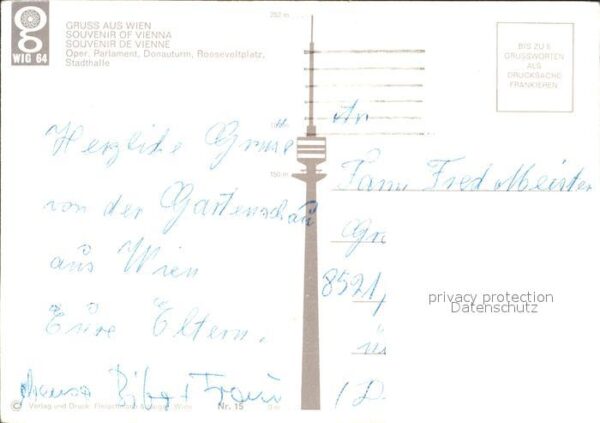 WIG 64
GRUSS AUS WIEN
SOUVENIR OF VIENNA
SOUVENIR DE VIENNE
Oper, Parlament, Donauturm, Rooseveltplatz,
Stadthalle
252 m
150 m
BIS ZU 5
GRUSSWORTEN
ALS
DRUCKSACHE
FRANKIEREN
Herzliche Grüße
von der Gartenschau
aus Wien
Eure Eltern.
An
Fam Fred Meister
Gr
8521
privacy protection
Datenschutz
© Verlag und Druck Wien Nr. 15